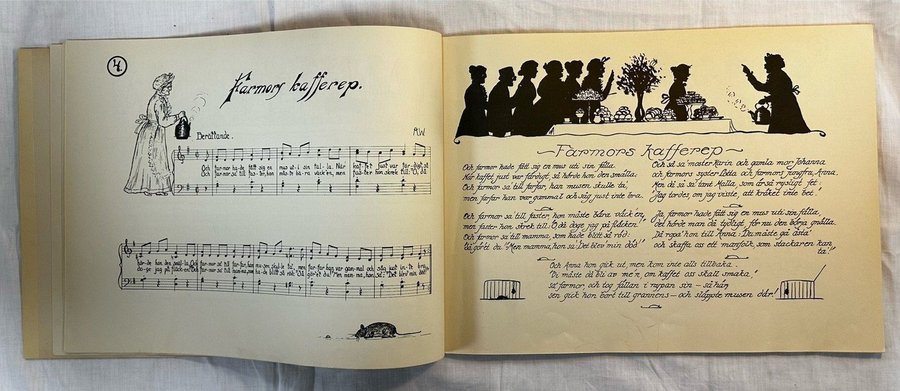 4.
Farmors kafferep.
Berättande.
A.W.
Och farmor hade fått sig en mus uti sin fälla. När kaffet just var färdigt så
Och farmor sa till faster, hon måste bära väck'en, men faster hon skrek till: O, då
hörde hon den smälla. Och farmor sa till farfar, han musen skulle ta', men farfar han var gammal och såg just inte bra.
Farmors kafferep
Och farmor hade fått sig en mus uti sin fälla.
När kaffet just var färdigt, så hörde hon den smälla.
Och farmor sa till farfar, han musen skulle ta',
men farfar han var gammal och såg just inte bra.
Och farmor sa till faster hon måste bära väck'en,
men faster hon skrek till: O då dager jag på fläcken!
Och farmor sa till mamma, som hade blått så röd:
"Men mamma, hon sa: Det blev min död!"
Och så sa' moster Karin och gamla mor Johanna
och farmors syster Lotta och farmors jungfru, Anna.
Men då sa' tant Malla, som också rysligt fet:
Jag tordes, om jag visste, att kräket inte bet!
Ja, farmor hade fått sig en mus uti sin fälla,
det hörde man då tydligt för nu den börja gnälla.
Då ropa' hon till Anna: Du måste gå åsta'
och skaffa oss ett manfolk, som stackaren kan
ta'!
Och Anna hon gick ut, men kom inte alls tillbaka.
Vi måste då bli av me'n, om kaffet oss skall smaka!
sa' farmor, och tog fällan i nypan sin – så här,
sen gick hon bort till grannens – och släppte musen där!